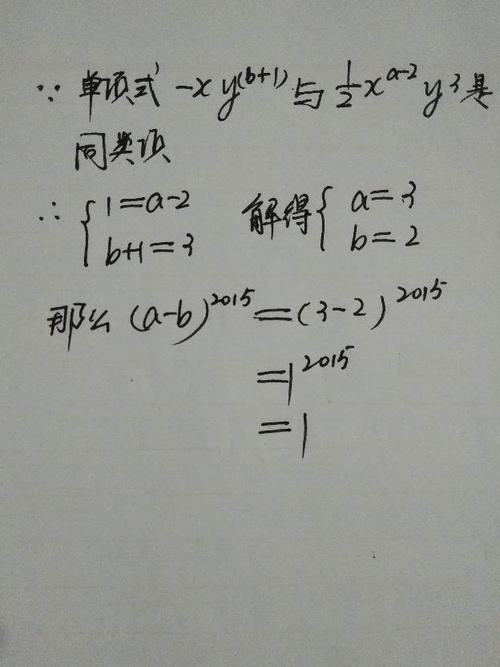 ∵ 单项式 -xy^(b+1) 与 1/2 x^(a-2) y^3 是
同类项
∴ { 1=a-2 解得 { a=3
b+1=3 b=2
那么 (a-b)^2015 = (3-2)^2015
=1^2015
=1